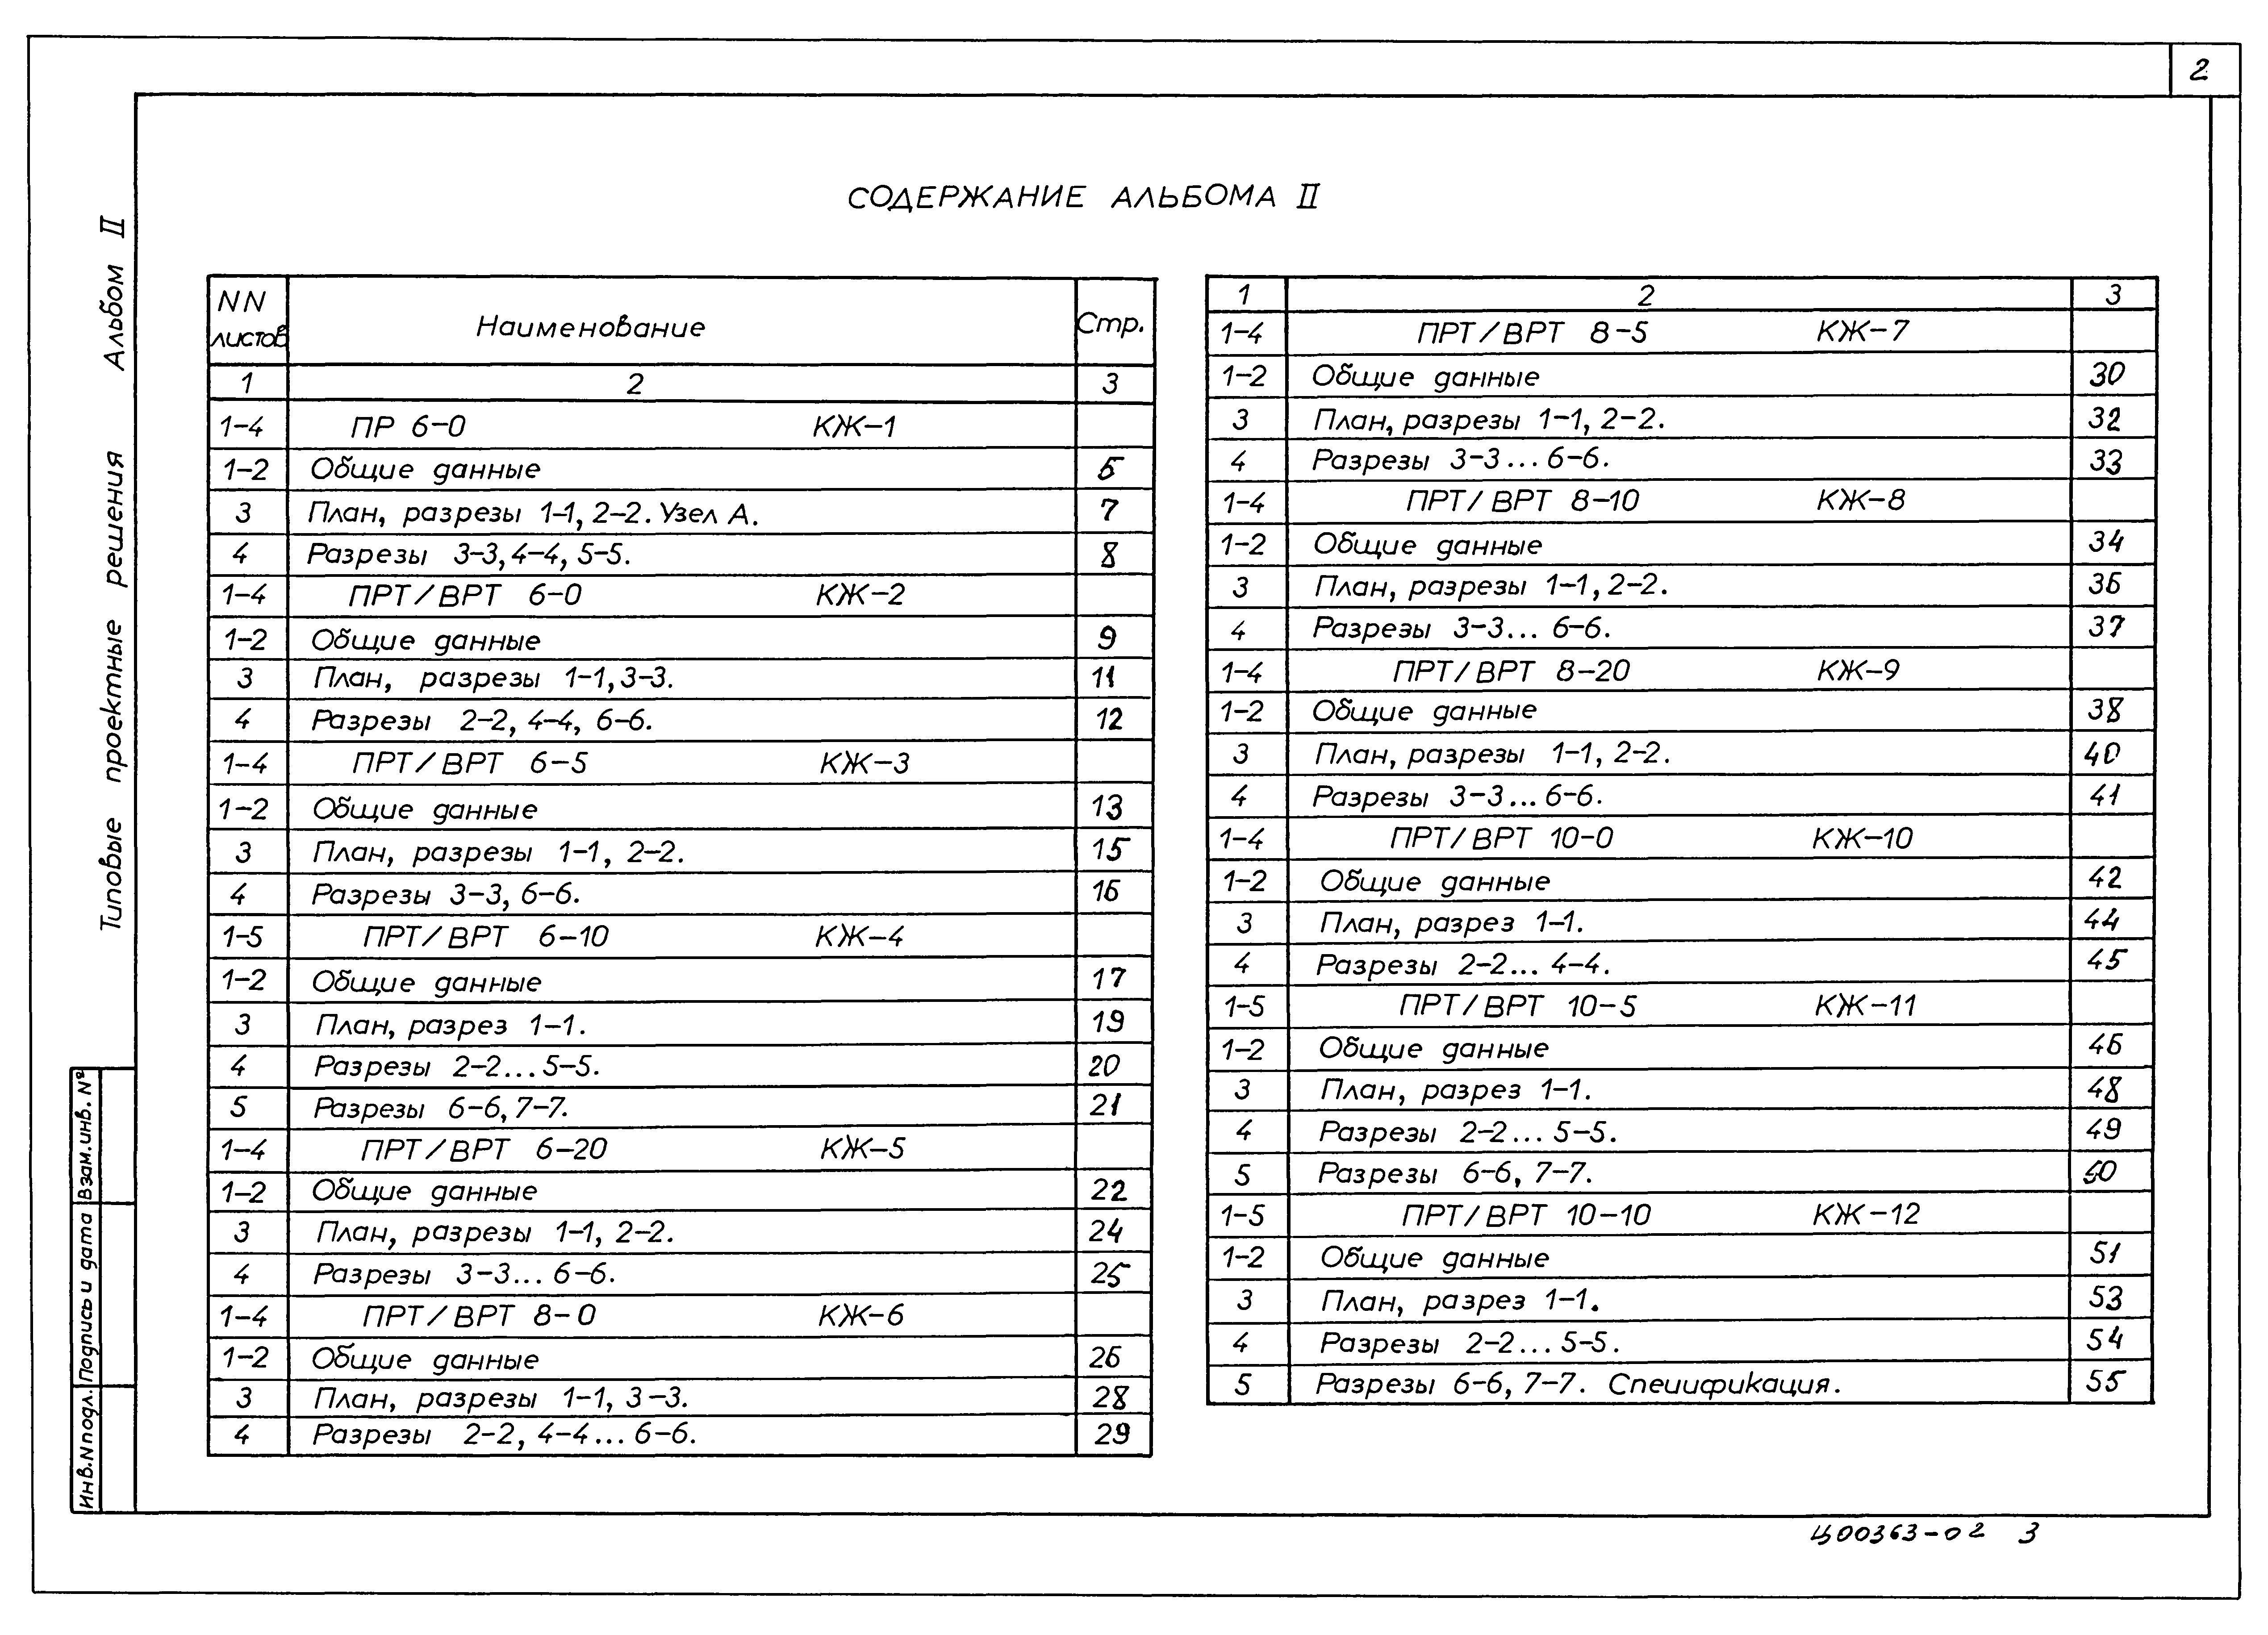 2
СОДЕРЖАНИЕ АЛЬБОМА II
Типовые проектные решения Альбом II
NN листов Наименование Стр.
1 2 3
1-4 ПР 6-0 КЖ-1
1-2 Общие данные 5
3 План, разрезы 1-1, 2-2. Узел А. 7
4 Разрезы 3-3, 4-4, 5-5. 8
1-4 ПРТ/ВРТ 6-0 КЖ-2
1-2 Общие данные 9
3 План, разрезы 1-1, 3-3. 11
4 Разрезы 2-2, 4-4, 6-6. 12
1-4 ПРТ/ВРТ 6-5 КЖ-3
1-2 Общие данные 13
3 План, разрезы 1-1, 2-2. 15
4 Разрезы 3-3, 6-6. 16
1-5 ПРТ/ВРТ 6-10 КЖ-4
1-2 Общие данные 17
3 План, разрез 1-1. 19
4 Разрезы 2-2...5-5. 20
5 Разрезы 6-6, 7-7. 21
1-4 ПРТ/ВРТ 6-20 КЖ-5
1-2 Общие данные 22
3 План, разрезы 1-1, 2-2. 24
4 Разрезы 3-3...6-6. 25
1-4 ПРТ/ВРТ 8-0 КЖ-6
1-2 Общие данные 26
3 План, разрезы 1-1, 3-3. 28
4 Разрезы 2-2, 4-4...6-6. 29
1 2 3
1-4 ПРТ/ВРТ 8-5 КЖ-7
1-2 Общие данные 30
3 План, разрезы 1-1, 2-2. 32
4 Разрезы 3-3...6-6. 33
1-4 ПРТ/ВРТ 8-10 КЖ-8
1-2 Общие данные 34
3 План, разрезы 1-1, 2-2. 36
4 Разрезы 3-3...6-6. 37
1-4 ПРТ/ВРТ 8-20 КЖ-9
1-2 Общие данные 38
3 План, разрезы 1-1, 2-2. 40
4 Разрезы 3-3...6-6. 41
1-4 ПРТ/ВРТ 10-0 КЖ-10
1-2 Общие данные 42
3 План, разрез 1-1. 44
4 Разрезы 2-2...4-4. 45
1-5 ПРТ/ВРТ 10-5 КЖ-11
1-2 Общие данные 46
3 План, разрез 1-1. 48
4 Разрезы 2-2...5-5. 49
5 Разрезы 6-6, 7-7. 50
1-5 ПРТ/ВРТ 10-10 КЖ-12
1-2 Общие данные 51
3 План, разрез 1-1. 53
4 Разрезы 2-2...5-5. 54
5 Разрезы 6-6, 7-7. Спецификация. 55
Инв.N подл. Подпись и дата Взам.инв.№
Ц00363-02 3